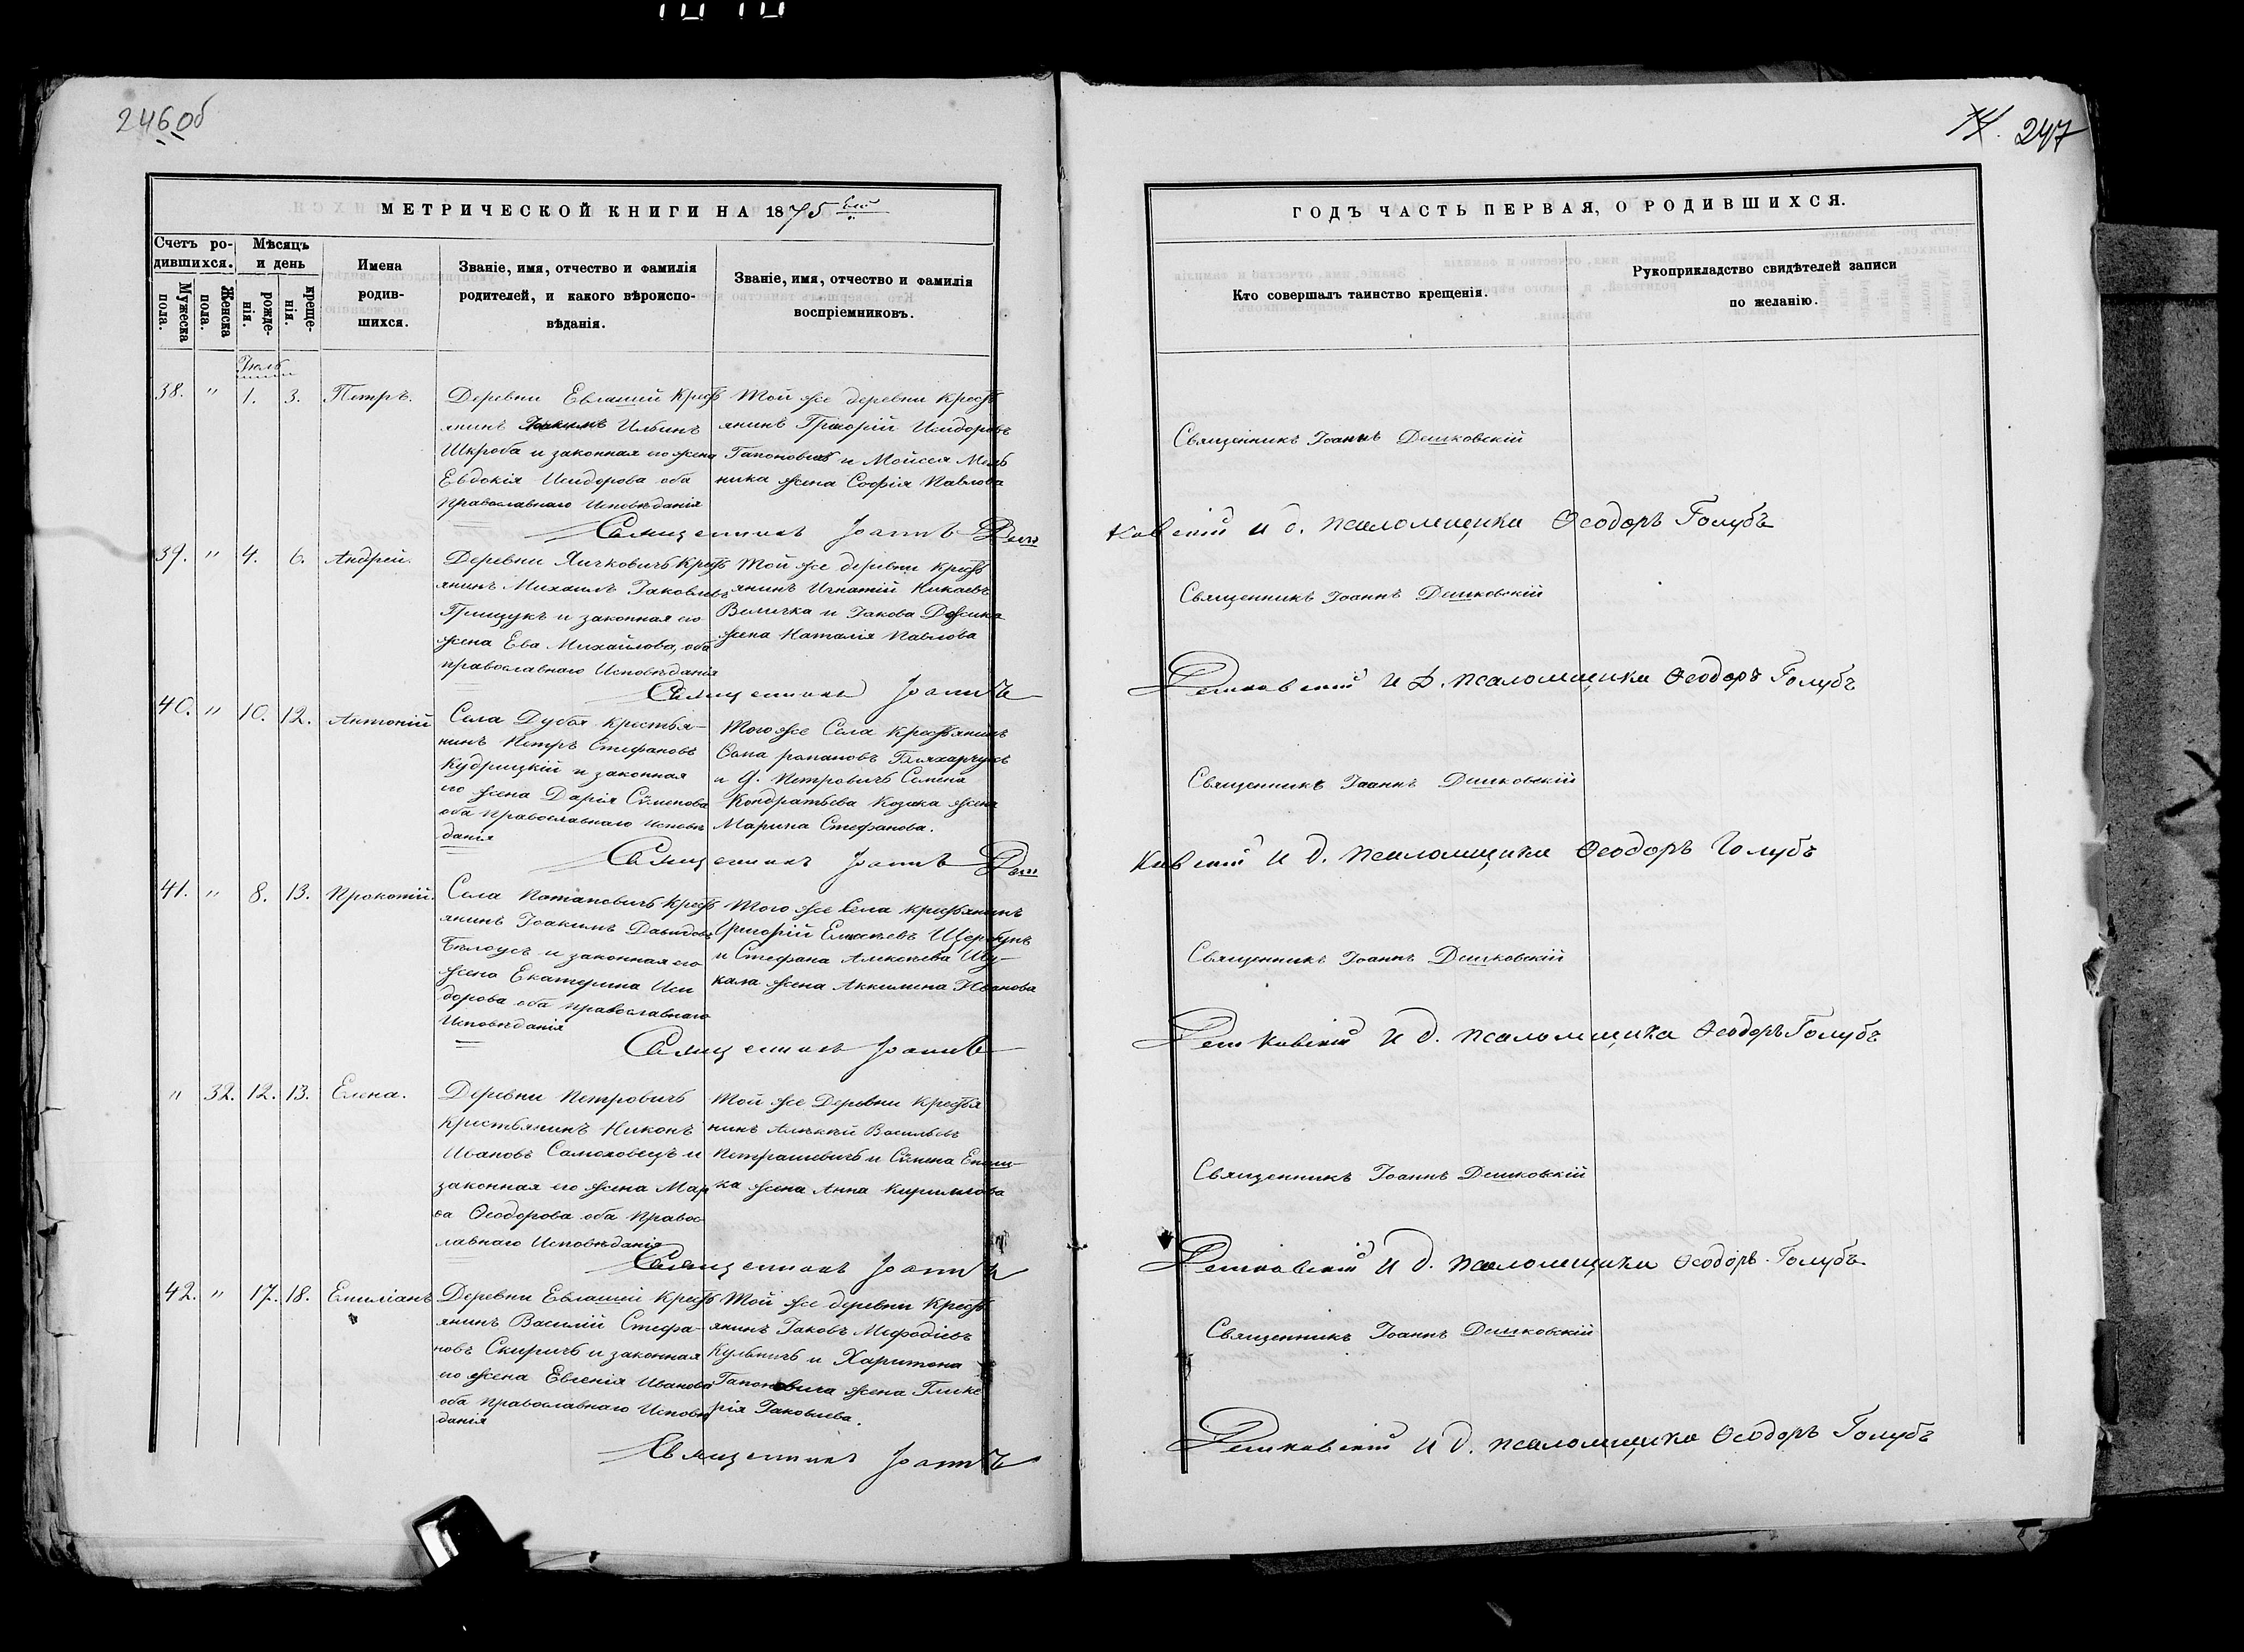 246 об
14. 247
МЕТРИЧЕСКОЙ КНИГИ НА 1875 ый
Счетъ ро-
дившихся.
Мужеска пола.
Женска пола.
Мѣсяцъ
и день
рожде-
нія.
креще-
нія.
Имена
родив-
шихся.
Званіе, имя, отчество и фамилія
родителей, и какого вѣроиспо-
вѣданія.
Званіе, имя, отчество и фамилія
воспріемниковъ.
Іюль
38. " 1. 3. Петръ.
Деревни Евлашій Крест
янинъ Іоакимъ Ильинъ
Шкроба и законная его жена
Евдокія Исидорова оба
православнаго Исповѣданія
Той же деревни крест
янинъ Григорій Исидоровъ
Гапоновичъ и Мойсея Мель
ника жена Софія Павлова
Священникъ Іоаннъ Деш
39. " 4. 6. Андрей.
Деревни Яичковичъ Крест
янинъ Михаилъ Іаковлевъ
Грищукъ и законная его
жена Ева Михайлова, оба
православнаго Исповѣданія
Той же деревни крест
янинъ Игнатій
Величка и Іакова
жена Наталія Павлова
Священникъ Іоаннъ
40. " 10. 12. Антоній
Села Дубоя крестья-
нинъ Петръ Стефановъ
Кудрицкій и законная
его жена Дарія Сѵменова
оба православнаго исповѣ
данія
Того же Села Крестянинъ
Ѳома романовъ
и д. Петровичъ Семена
Кондратьева Козака жена
Марина Стефанова.
Священникъ Іоаннъ Деш
41. " 8. 13. Прокопій.
Села Потаповичъ Крест
янинъ Іоакимъ Давидовъ
Бѣлоусъ и законная его
жена Екатерина Иси
дорова оба православнаго
Исповѣданія
Того же Села крестянинъ
Григорій Щербунъ
и Стефана Алексѣева Шу-
кала жена Акилина Иванова
Священникъ Іоаннъ
" 32. 12. 13. Елена.
Деревни Петровичъ
Крестьянинъ Никонъ
Ивановъ Самоховецъ и
законная его жена Мар
ѳа Ѳеодорова оба право
лавнаго Исповѣданія
Той же Деревни Крестья
нинъ Алексѣй Васильевъ
Петрашевичъ и Сѵмена
ка жена Анна Кириллова
Священникъ Іоаннъ
42. " 17. 18. Емиліанъ
Деревни Евлашій Крест
янинъ Василій Стефа-
новъ Скиричъ и законная
его жена Евгенія Иванова
оба православнаго Исповѣ
данія
Той же деревни Крест
янинъ Іаковъ Меѳодіевъ
Кульничъ и Харитона
Гапоновича жена Глике
рія Іаковлева.
Священникъ Іоаннъ
ГОДЪ ЧАСТЬ ПЕРВАЯ, О РОДИВШИХСЯ.
Кто совершалъ таинство крещенія.
Рукоприкладство свидѣтелей записи
по желанію.
Священникъ Іоаннъ Дешковскій
ковскій И д. псаломщика Ѳеодоръ Голубъ
Священникъ Іоаннъ Дешковскій
Дешковскій И д. псаломщика Ѳеодоръ Голубъ
Священникъ Іоаннъ Дешковскій
ковскій И д. псаломщика Ѳеодоръ Голубъ
Священникъ Іоаннъ Дешковскій
Дешковскій И д. псаломщика Ѳеодоръ Голубъ
Священникъ Іоаннъ Дешковскій
Дешковскій И д. псаломщика Ѳеодоръ Голубъ
Священникъ Іоаннъ Дешковскій
Дешковскій И д. псаломщика Ѳеодоръ Голубъ